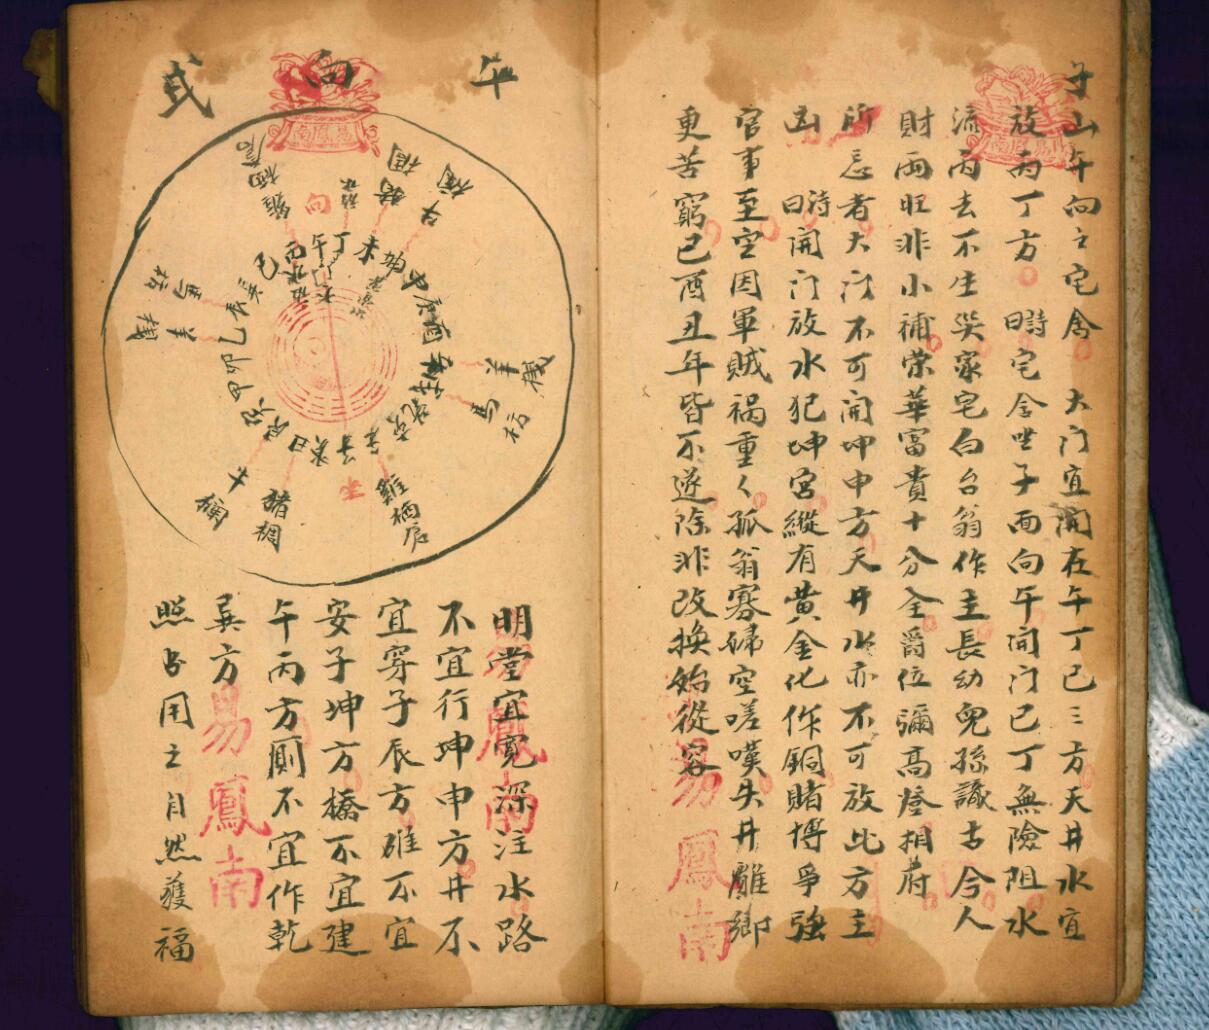 子山午向之宅舍　大门宜開在午丁巳三方天井水宜
放丙丁方　詩曰宅舍坐子面向午開门巳丁無險阻水
流丙去不生災家宅白台翁作主長幼兒孫識古今人
財兩旺非小補荣華富貴十分全爵位彌高登相府
所忌者大门不可開坤申方天井水亦不可放此方主
凶　詩曰開门放水犯坤宮縱有黄金化作銅賭博爭強
官事至空因軍賊禍重々孤翁寡婦空嗟嘆失井離鄉
更苦窮巳酉丑年皆不遂除非改換始從容
午向式
易鳳南
向
放水
午
丁
未
巳
巽
辰
乙
卯
甲
艮
丑
癸
子
坐
馬枋
羊欄
牛欄
猪欄
雞栖
雞栖
馬枋
羊棧
牛欄
明堂宜寬深注水路
不宜行坤申方井不
宜穿子辰方碓不宜
安子坤方橋不宜建
午丙方厠不宜作乾
巽方
照此用之自然獲福
易鳳南
易鳳南
易鳳南